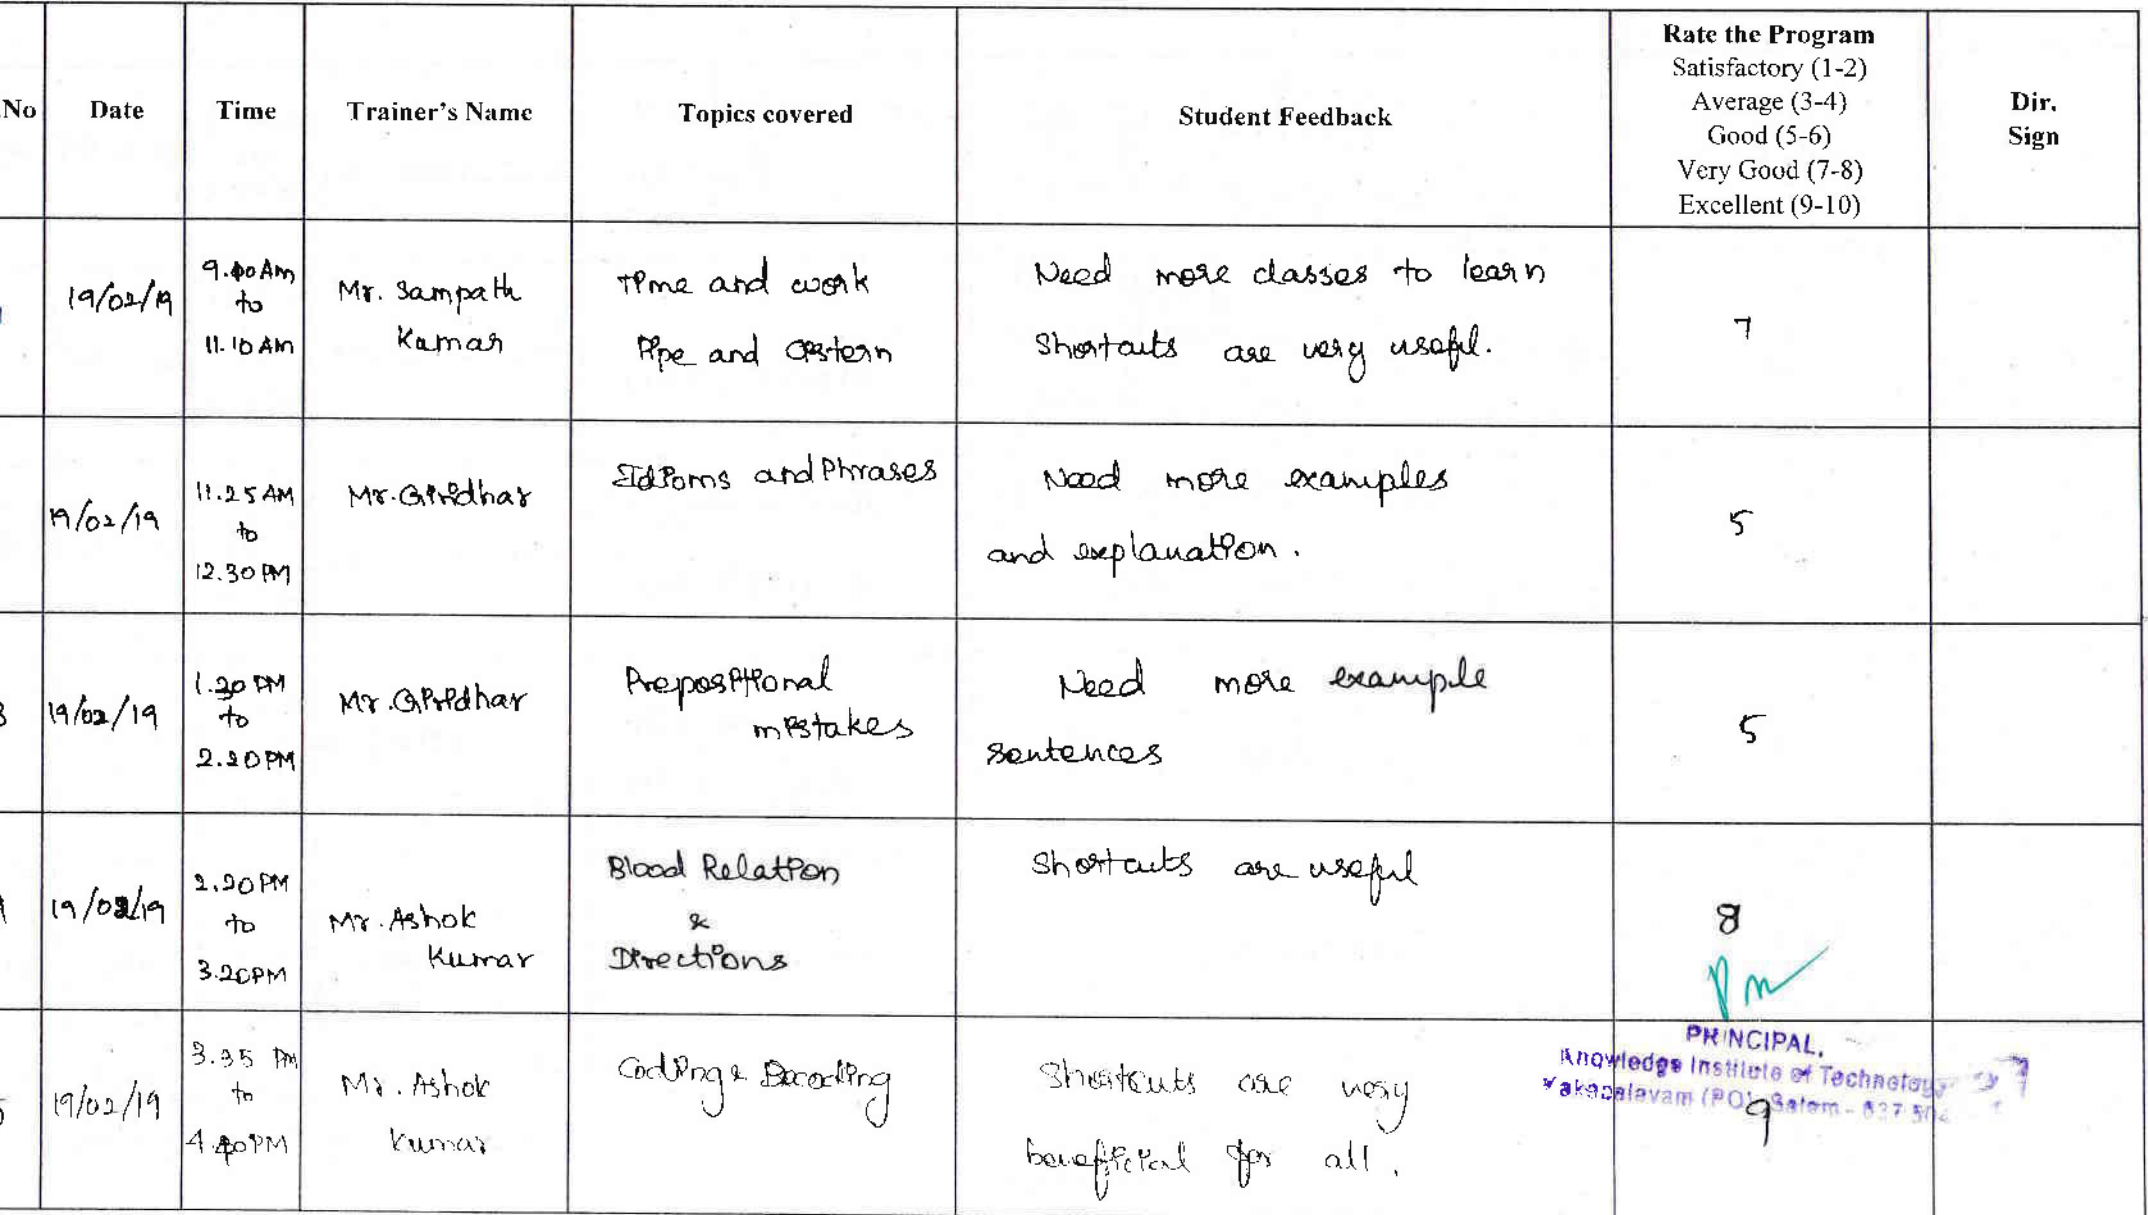 No
Date
Time
Trainer's Name
Topics covered
Student Feedback
Rate the Program
Satisfactory (1-2)
Average (3-4)
Good (5-6)
Very Good (7-8)
Excellent (9-10)
Dir.
Sign
19/02/19
9.00 Am
to
11.10 Am
Mr. Sampath
Kumar
Time and work
Pipe and Cistern
Need more classes to learn
Shortcuts are very useful.
7
19/02/19
11.25 AM
to
12.30 PM
Mr. Giridhar
Idioms and Phrases
Need more examples
and explanation.
5
3
19/02/19
1.20 PM
to
2.20 PM
Mr. Giridhar
Prepositional
mistakes
Need more example
sentences
5
19/02/19
2.20 PM
to
3.20 PM
Mr. Ashok
Kumar
Blood Relation
&
Directions
Shortcuts are useful
8
19/02/19
3.35 PM
to
4.40 PM
Mr. Ashok
Kumar
Coding & Decoding
Shortcuts are very
beneficial for all.
PRINCIPAL,
Knowledge Institute of Technology
Kakapalayam (PO), Salem - 637 504
9